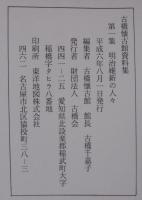 古橋懐古館資料集
第一集 明治維新の人々
平成六年八月一日発行
編集者 古橋懐古館 館長 古橋千嘉子
発行者 財団法人 古橋会
四四一-二五 愛知県北設楽郡稲武町大字
稲橋字タヒラ八番地
印刷所 東洋地図株式会社
四六二 名古屋市北区猿投町三八-三